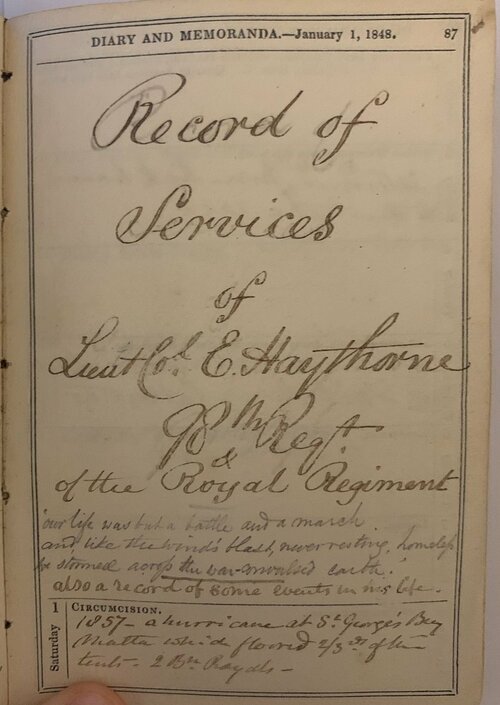 DIARY AND MEMORANDA.—January 1, 1848. 87
Record of
Services
of
Lieut Col. E. Haythorne
98th Regt.
&
of the Royal Regiment
'our life was but a battle and a march
and like the wind's blast, never resting, homeless
we stormed across the war-convulsed earth.'
also a record of some events in his life.
Saturday 1
CIRCUMCISION.
1857 - a hurricane at St. George's Bay
Malta which floored 2/3rds of the
tents - 2 Bn Royals -